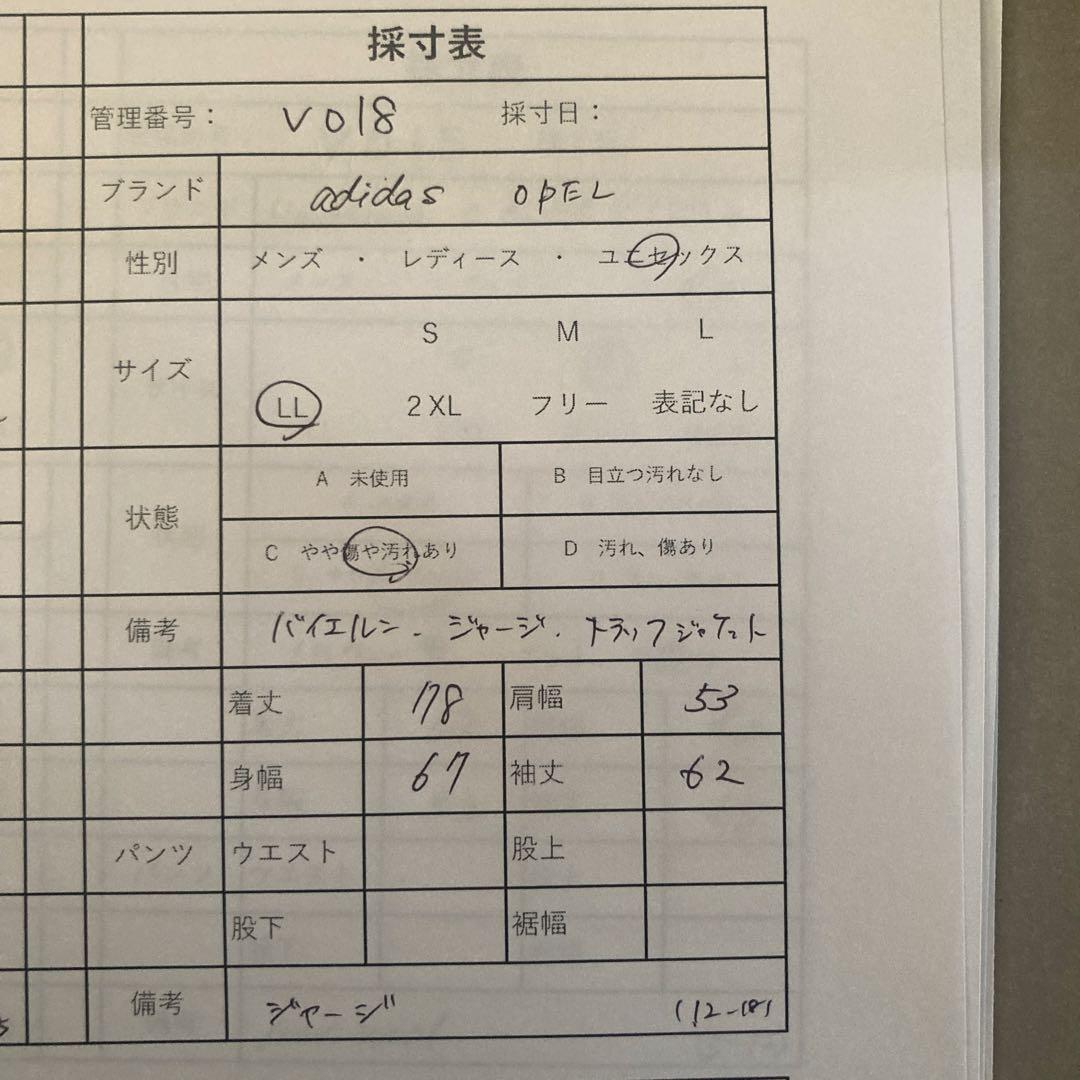 採寸表
管理番号： V018 採寸日：
ブランド adidas OPEL
性別 メンズ ・ レディース ・ ユニセックス
S M L
サイズ
LL 2XL フリー 表記なし
A 未使用 B 目立つ汚れなし
状態
C やや傷や汚れあり D 汚れ、傷あり
備考 バイエルン．ジャージ．トラックジャケット
着丈 78 肩幅 53
身幅 67 袖丈 62
パンツ ウエスト 股上
股下 裾幅
備考 ジャージ